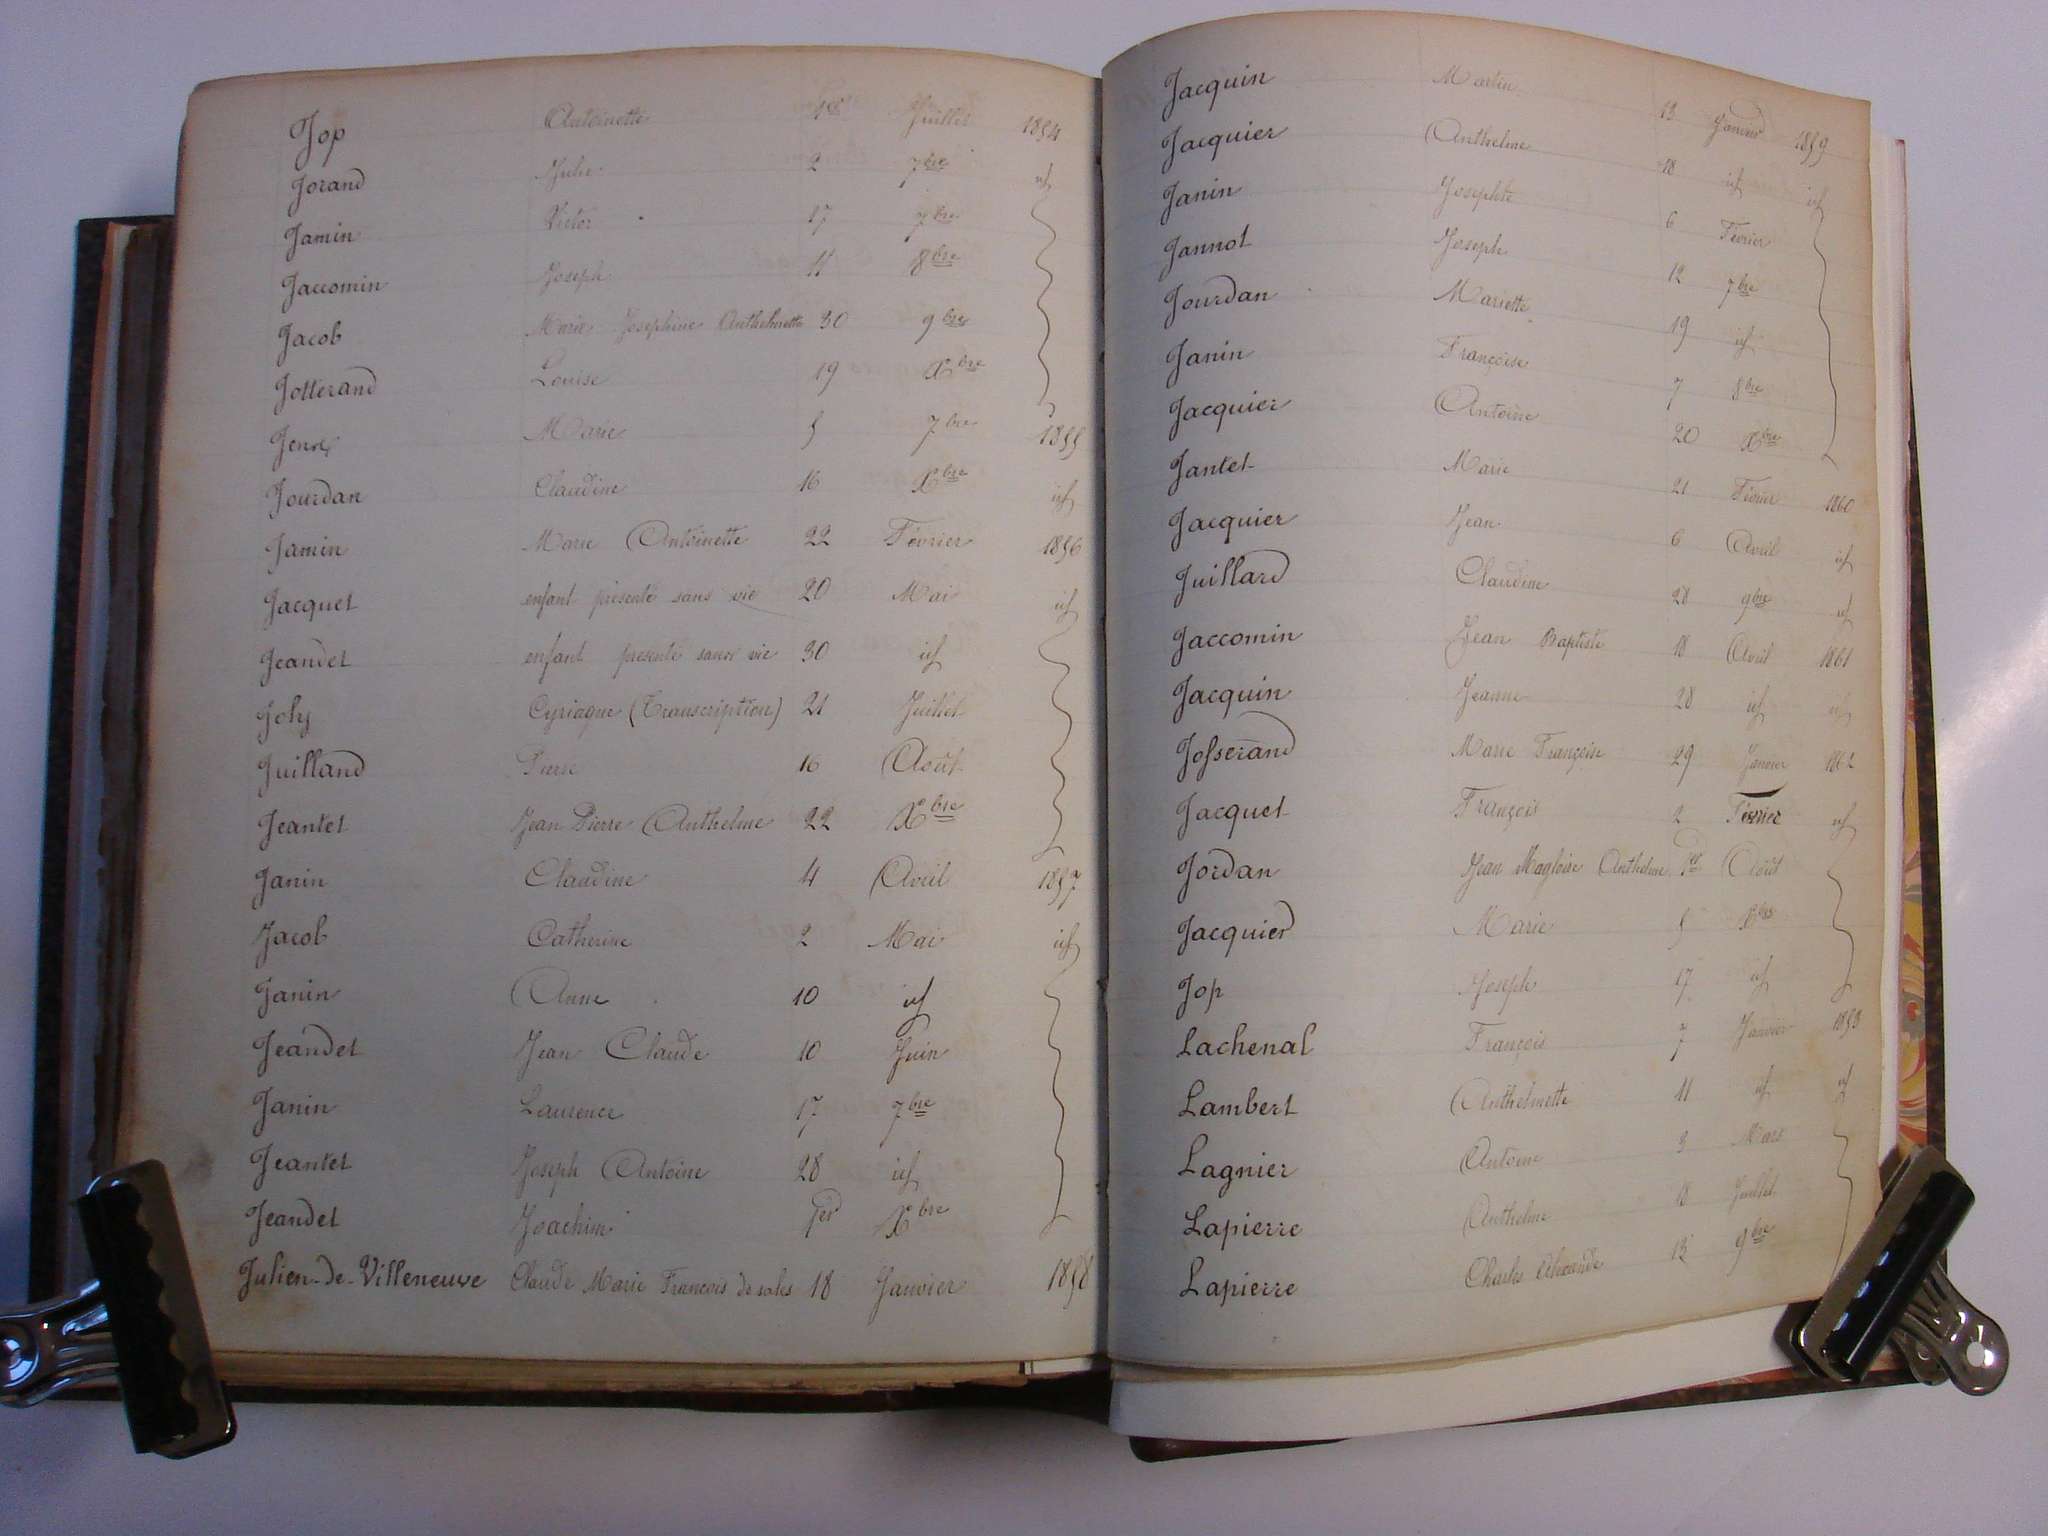 Jop Antoinette 1er Juillet 1854
Jorand Julie 2 7bre id
Jamin Victor 17 7bre
Jaccomin Joseph 11 8bre
Jacob Marie Josephine Anthelmette 30 9bre
Jotterand Louise 19 Xbre
Marie 5 7bre 1855
Jourdan Claudine 16 Xbre id
Jamin Marie Antoinette 22 Février 1856
Jacquet enfant présenté sans vie 20 Mai id
Jeandet enfant présenté sans vie 30 id
Joly Cyriaque (Transcription) 21 Juillet
Juilland Pierre 16 Août
Jeantet Jean Pierre Anthelme 22 Xbre
Janin Claudine 4 Avril 1857
Jacob Catherine 2 Mai id
Janin Anne 10 id
Jeandet Jean Claude 10 Juin
Janin Laurence 17 7bre
Jeantet Joseph Antoine 28 id
Jeandet Joachim 1er Xbre
Julien-de-Villeneuve Claude Marie François de sales 18 Janvier 1858
Jacquin Martin 13 Janvier 1859
Jacquier Anthelme 18 id id
Janin Josephte 6 Février
Jannot Joseph 12 7bre
Jourdan Mariette 19 id
Janin Françoise 7 8bre
Jacquier Antoine 20 Xbre
Jantet Marie 21 Février 1860
Jacquier Jean 6 Avril id
Juillard Claudine 28 9bre id
Jaccomin Jean Baptiste 18 Avril 1861
Jacquin Jeanne 28 id id
Josserand Marie Françoise 29 Janvier 1862
Jacquet François 2 Février id
Jordan Jean Magloire Anthelme 1er Août
Jacquier Marie 5 8bre
Jop Joseph 17 id
Lachenal François 7 Janvier 1853
Lambert Anthelmette 11 id id
Lagnier Antoine 3 Mars
Lapierre Anthelme 18 Juillet
Lapierre Charles 13 9bre